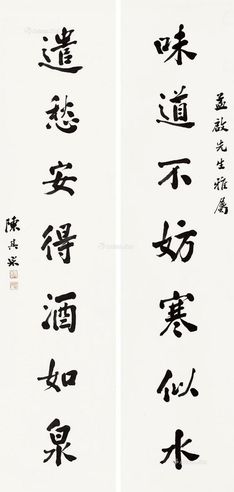 益敵先生雅屬
味道不妨寒似水
遣愁安得酒如泉
陳其采